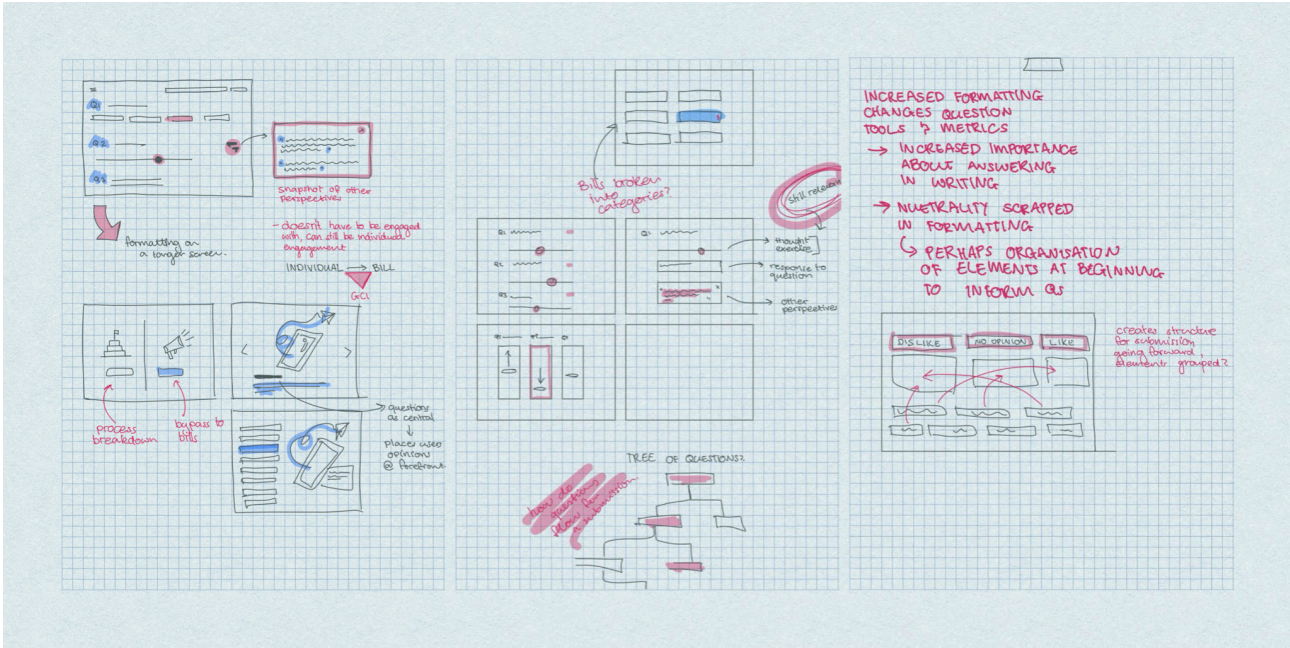 Q1
Q2
Q3
snapshot of other
perspectives
- doesn't have to be engaged
with, can still be individual
engagement
formatting on
a larger screen.
INDIVIDUAL → BILL
GCI
process
breakdown
bypass to
bills
questions
as central
places user
opinion
@ forefront.
Bills broken
into
categories?
still relevant
Q1
Q2
Q3
Q1
thought
exercise
response to
question
other
perspectives
TREE OF QUESTIONS?
how do
questions
flow for
a submission
INCREASED FORMATTING
CHANGES QUESTION
TOOLS & METRICS
→ INCREASED IMPORTANCE
ABOUT ANSWERING
IN WRITING
→ NUETRALITY SCRAPPED
IN FORMATTING
↳ PERHAPS ORGANISATION
OF ELEMENTS AT BEGINNING
TO INFORM QS
DISLIKE
NO OPINION
LIKE
creates structure
for submission
going forward,
elements grouped?